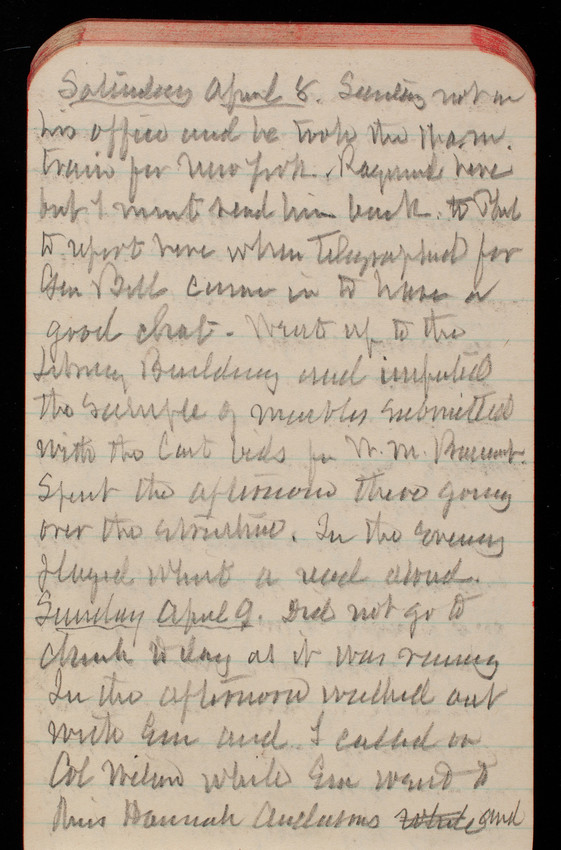 Saturday April 8. not in
his office and he took the 11 a.m.
train for New York. Raymond here
but I must send him back. to
to report here when Telegraphed for
Gen Bell came in to have a
good chat. Went up to the
Library Building and inspected
the sample of marbles submitted
with the last bids for N. M.
Spent the afternoon there going
over the structure. In the evening
played whist & read aloud.
Sunday April 9. Did not go to
church to day as it was raining
In the afternoon walked out
with Em and I called on
Col Wilson while Em went to
Miss Hannah Andersons and